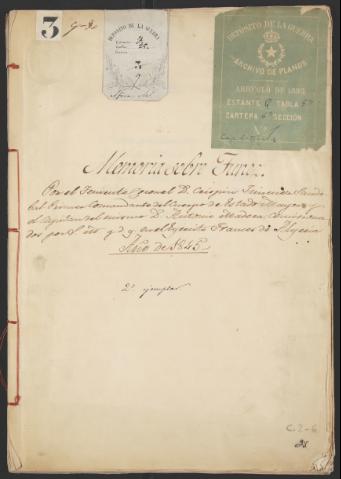 3
DEPÓSITO DE LA GUERRA
DEPÓSITO DE LA GUERRA
ARCHIVO DE PLANOS
ARTÍCULO DE
ESTANTE TABLA 5ª
CARTERA SECCIÓN
Memoria sobre Tunez
Por el Teniente Coronel D. Crispin Ximenez de Sandoval
Primer Comandante del Cuerpo de Estado Mayor y
el Capitan del mismo D. Antonio Madera Comisionados
por S. M. q. D. g. en el Ejercito Frances de Algeria
Año de 1845
2º ejemplar
C.2-6